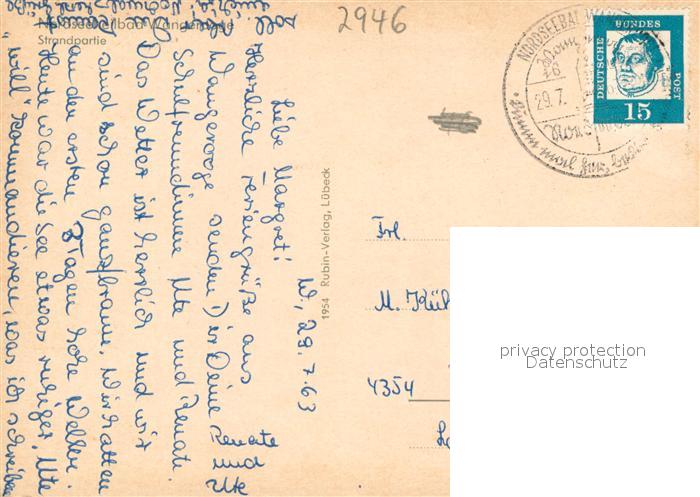 2946
Nordseebad Wangerooge
Strandpartie
NORDSEEBAD WANGEROOGE
29.7.
DEUTSCHE
BUNDES
POST
15
1954 Rubin-Verlag, Lübeck
W., 29.7.63
Liebe Margret!
Herzliche Feriengrüße aus
Wangerooge senden Dir Deine
Schulfreundinnen Ute und Renate.
Das Wetter ist herrlich und wir
sind schon ganz braun. Wir hatten
an den ersten Tagen hohe Wellen.
Heute war die See etwas ruhiger. Ute
"will" kommandieren, was ich schreiben
soll
Renate
und
Ute
Frl.
M. Küh
4354
privacy protection
Datenschutz